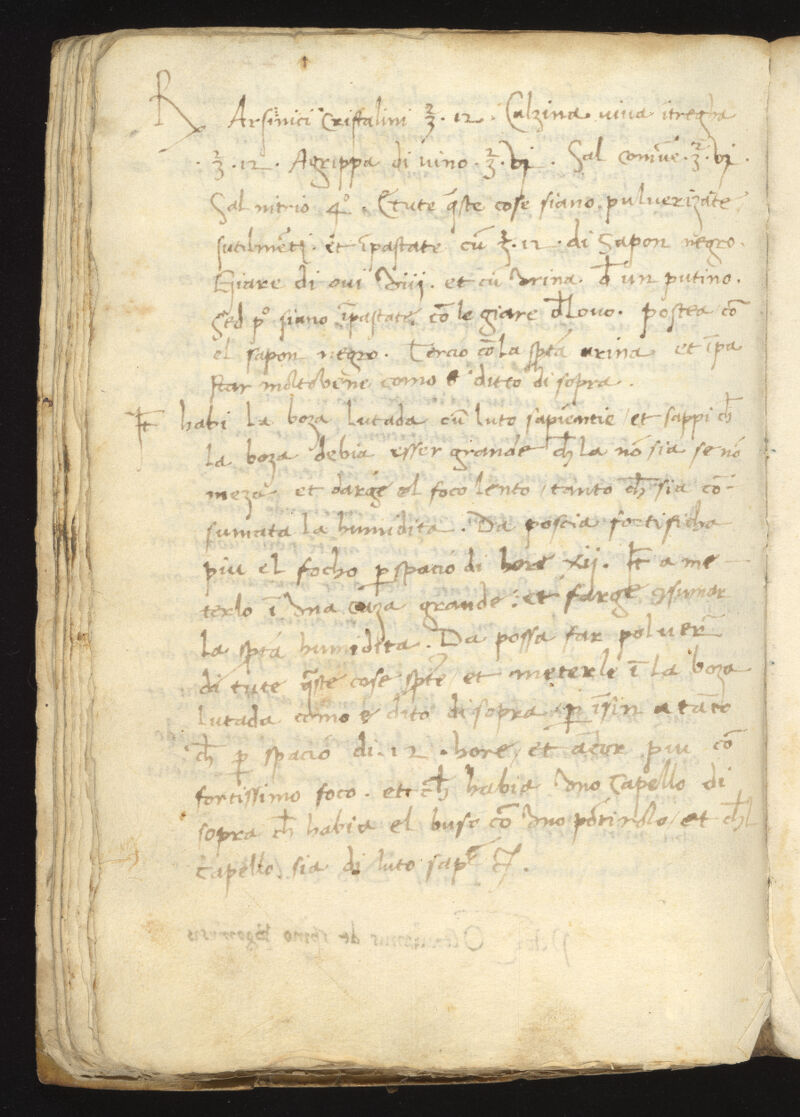 ℞ Arsinici Cristalini ℥ · 12 · Calzina viva itregha
· ℥ · 12 · Agrippa di vino · ℥ · vj · Sal comūe · ℥ · vj ·
Sal nitrio 4° · Et tute q̄ste cose siano pulverizate
sutilmēti · et īpastate cū ℥ · 12 · di Sapon negro ·
Giare di ovi viiij · et cū urina d̄ un putino ·
Sed p° siano īpastate cō le giare d̄ Lovo · postea cō
el sapon negro · Tercio cō la sp̄ta urina et īpa
star molto bene como e ditto di sopra ·
It̄ habi la boza lutada cū luto sapientie / et sappi ch̄
la boza debia esser grande ch̄ la nō sia se nō
meza et darge el foco lento / tanto ch̄ sia cō-
sumata la humidita · Da poscia fortificha
piu el focho p̄ spacio di hore xij · It̄ a me-
terlo ī una caza grande : et farge 9sumar
la sp̄ta humidita · Da possa far polver̄
di tute q̄ste cose sp̄te / et meterle ī la boza
lutada como e dito di sopra p̄ īsin a tāto
ch̄ p̄ spacio di · 12 · hore / et ācor piu cō
fortissimo foco · et ch̄ habia uno Capello di
sopra ch̄ habia el buso cō uno / et ch̄l
Capello sia di luto sap̄